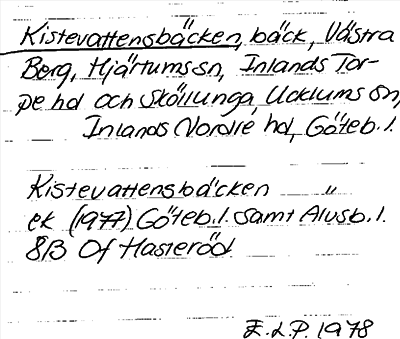 Kistevattensbäcken, bäck, Västra
Berg, Hjärtums sn, Inlands Tor-
pe hd och Sköllunga, Ucklums sn,
Inlands Nordre hd, Göteb. l.
Kistevattensbäcken "
ek (1977) Göteb. l. samt Älvsb. l.
8B Of Hasteröd
E.L.P. 1978